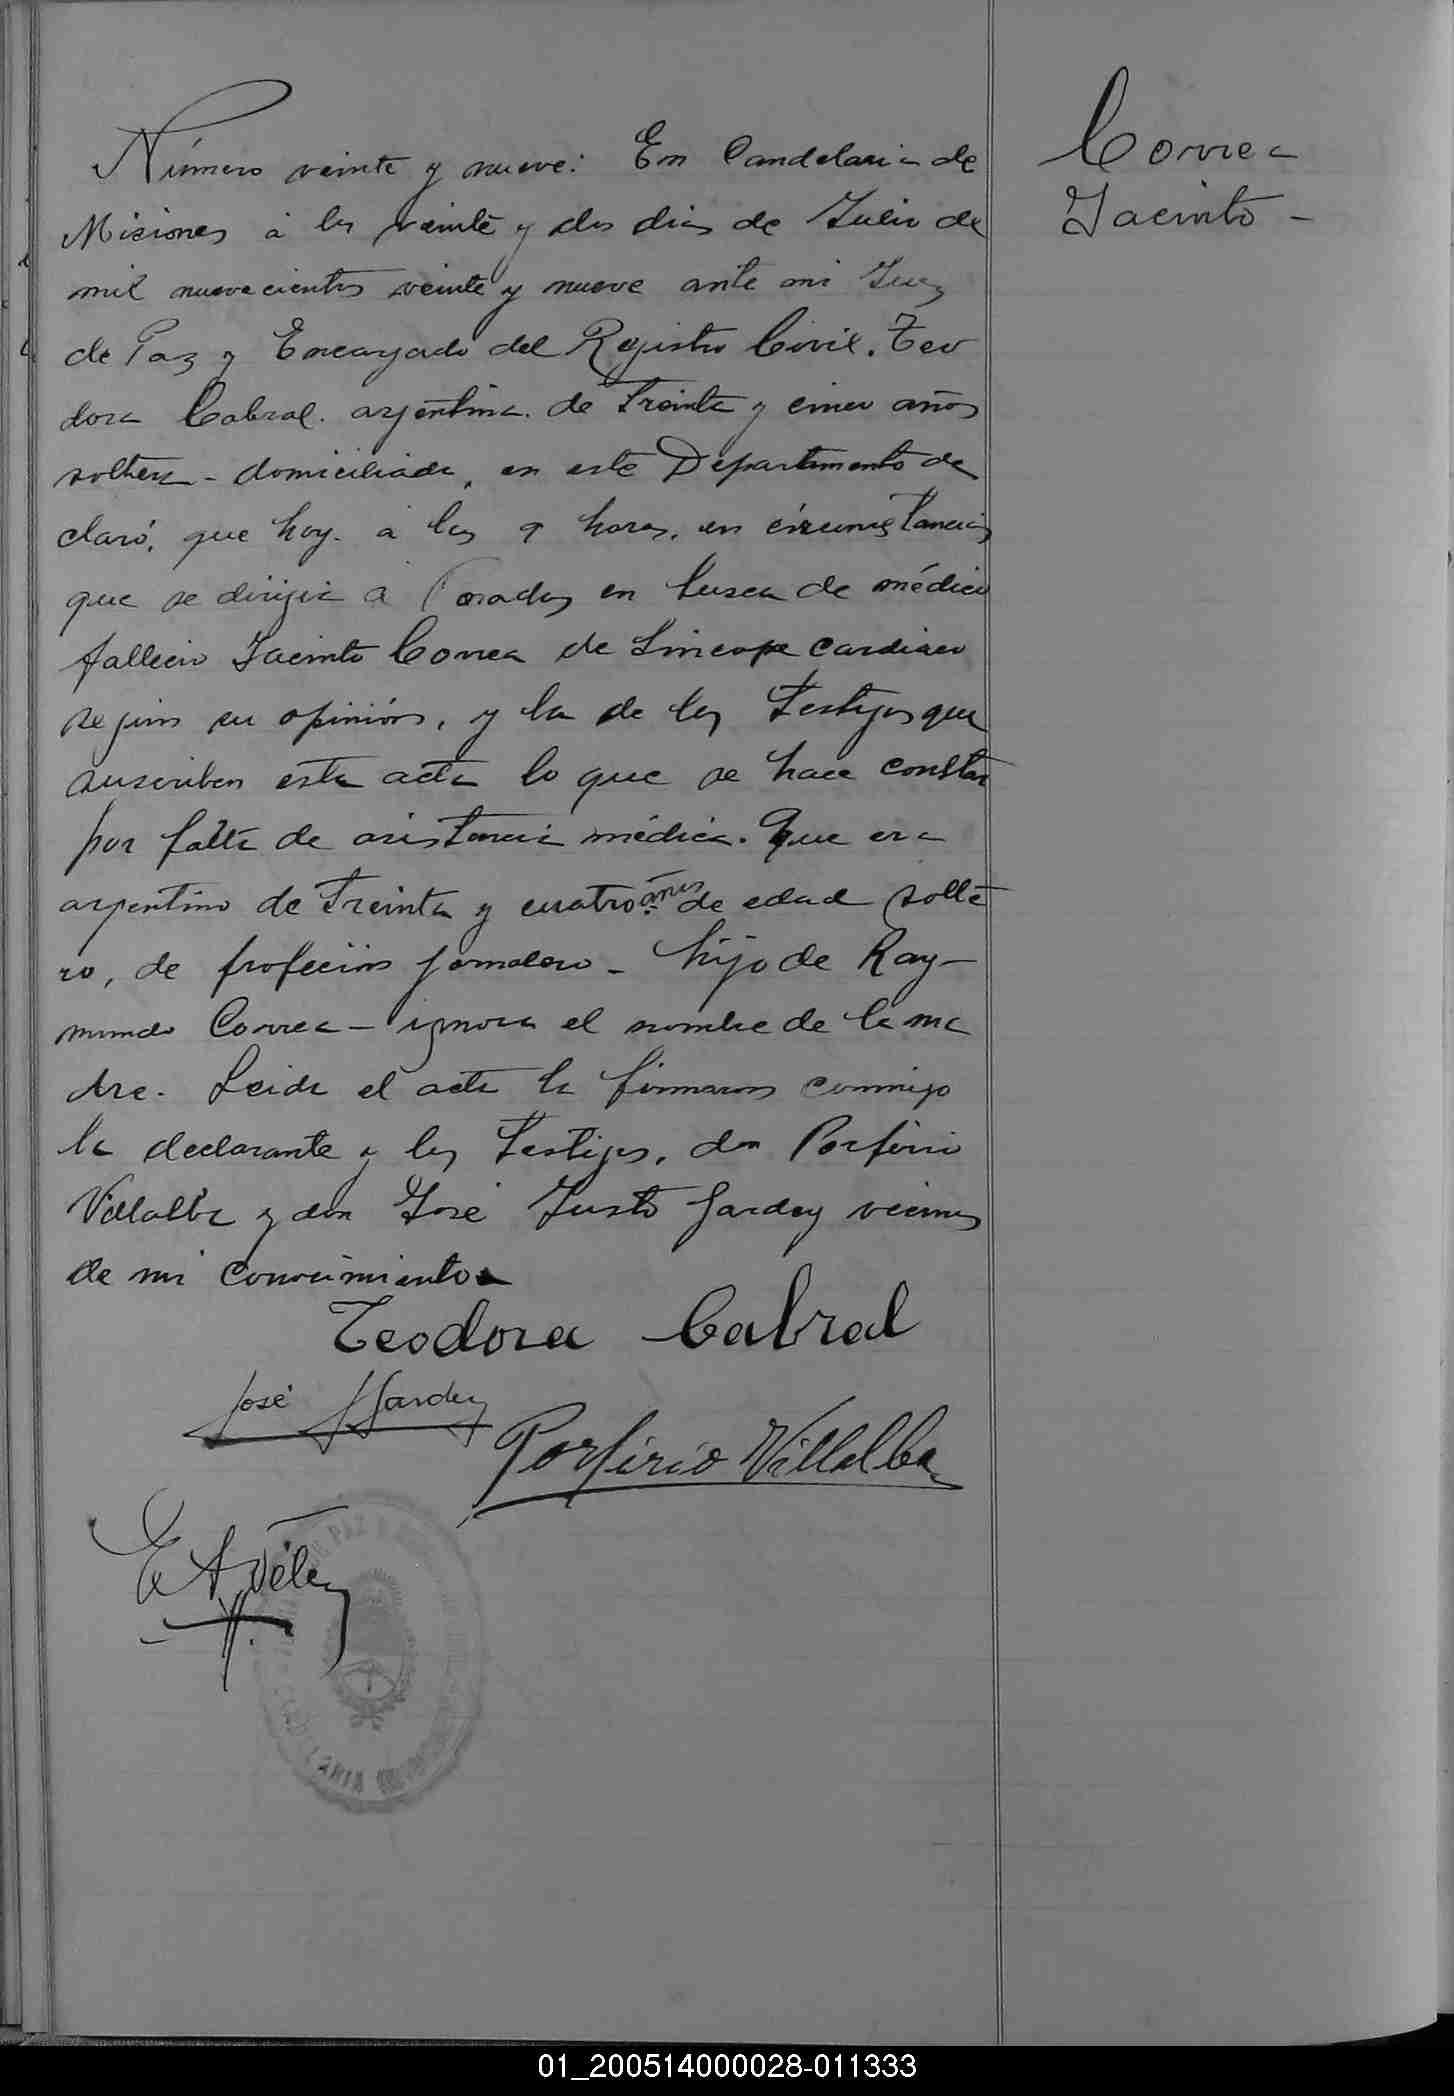 Correa
Jacinto -
Número veinte y nueve: En Candelaria de
Misiones á los veinte y dos dias de Julio de
mil nuevecientos veinte y nueve ante mi Juez
de Paz y Encargado del Registro Civil. Teo
dora Cabral. argentina. de treinta y cinco años
soltera - domiciliada, en este Departamento de
claró, que hoy. á las 9 horas, en circunstancias
que se dirijia á Posadas en busca de médico
fallecio Jacinto Correa de Sincope cardiaco
segun su opinión, y la de los testigos que
suscriben esta acta lo que se hace constar
por falta de asistencia médica. Que era
argentino de treinta y cuatro años de edad solte
ro, de profecion jornalero - hijo de Ray-
mundo Correa - ignora el nombre de la ma
dre. Leida el acta la firmaron conmigo
la declarante y los testigos, don Porfirio
Villalba y don José Justo Gardey vecinos
de mi conocimiento
Teodora Cabral
José J Gardey
Porfirio Villalba
E A Vélez
PAZ
CANDELARIA
01_200514000028-011333